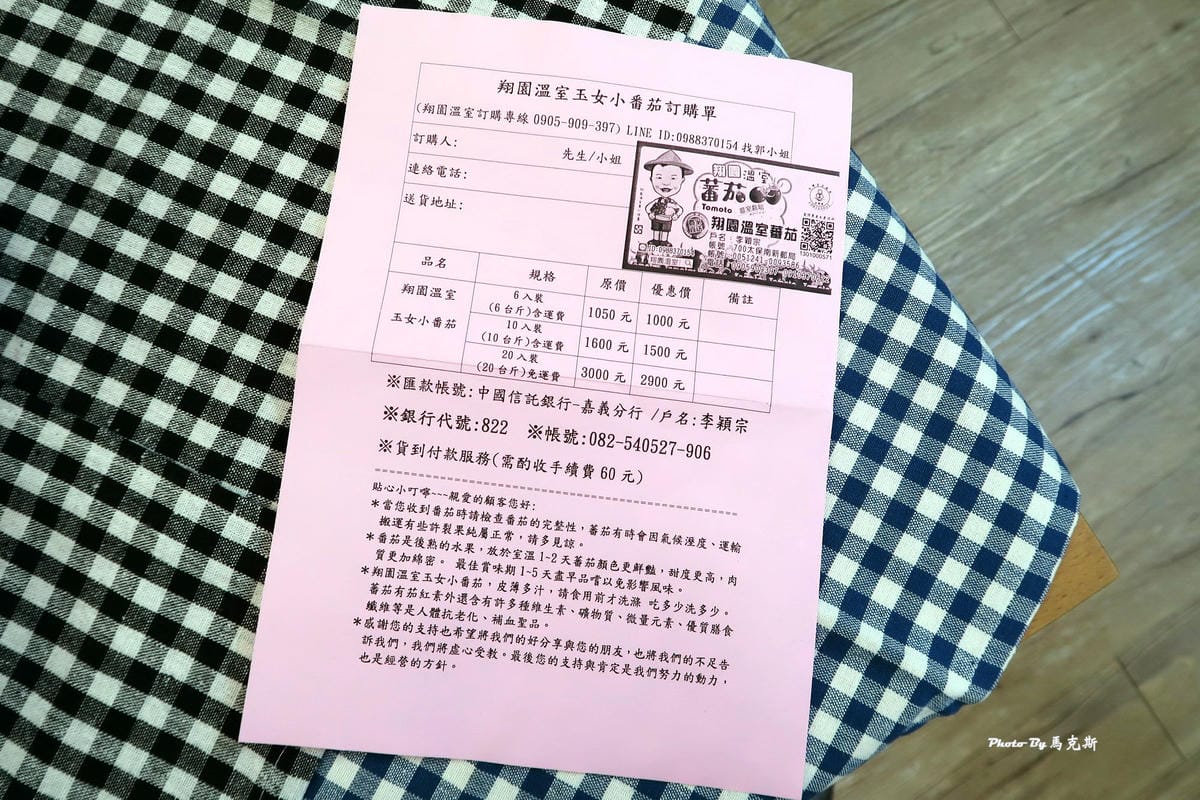 翔園溫室玉女小番茄訂購單
(翔園溫室訂購專線 0905-909-397) LINE ID:0988370154 找郭小姐
訂購人: 先生/小姐
連絡電話:
送貨地址:
翔園溫室
蕃茄
Tomoto
翔園溫室蕃茄
戶名:李穎宗
帳號:700太保南新郵局
1301000571
品名 規格 原價 優惠價 備註
翔園溫室
玉女小番茄
6入裝
(6台斤)含運費 1050元 1000元
10入裝
(10台斤)含運費 1600元 1500元
20入裝
(20台斤)免運費 3000元 2900元
※匯款帳號:中國信託銀行-嘉義分行 /戶名:李穎宗
※銀行代號:822 ※帳號:082-540527-906
※貨到付款服務(需酌收手續費60元)
貼心小叮嚀~~~親愛的顧客您好:
*當您收到番茄時請檢查番茄的完整性,蕃茄有時會因氣候溼度、運輸
搬運有些許裂果純屬正常,請多見諒。
*番茄是後熟的水果,放於室溫1-2天蕃茄顏色更鮮豔,甜度更高,肉
質更加綿密。 最佳賞味期1-5天盡早品嚐以免影響風味。
*翔園溫室玉女小番茄,皮薄多汁,請食用前才洗滌 吃多少洗多少。
蕃茄有茄紅素外還含有許多種維生素、礦物質、微量元素、優質膳食
纖維等是人體抗老化、補血聖品。
*感謝您的支持也希望將我們的好分享與您的朋友,也將我們的不足告
訴我們,我們將虛心受教。最後您的支持與肯定是我們努力的動力,
也是經營的方針。
Photo By 馬克斯